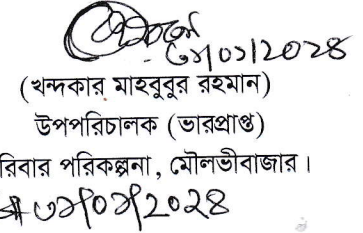 ০১/২০২৪
(খন্দকার মাহবুবুর রহমান)
উপপরিচালক (ভারপ্রাপ্ত)
রিবার পরিকল্পনা, মৌলভীবাজার।
২০২৪